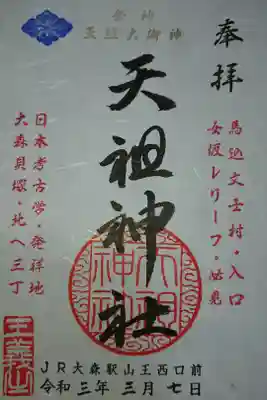 奉拝
馬込文士村・入口
女渡レリーフ・必見
祭神
天照大御神
天祖神社
日本考古学・発祥地
大森貝塚・北へ三丁
天祖神社
JR大森駅山王西口前
令和三年三月七日